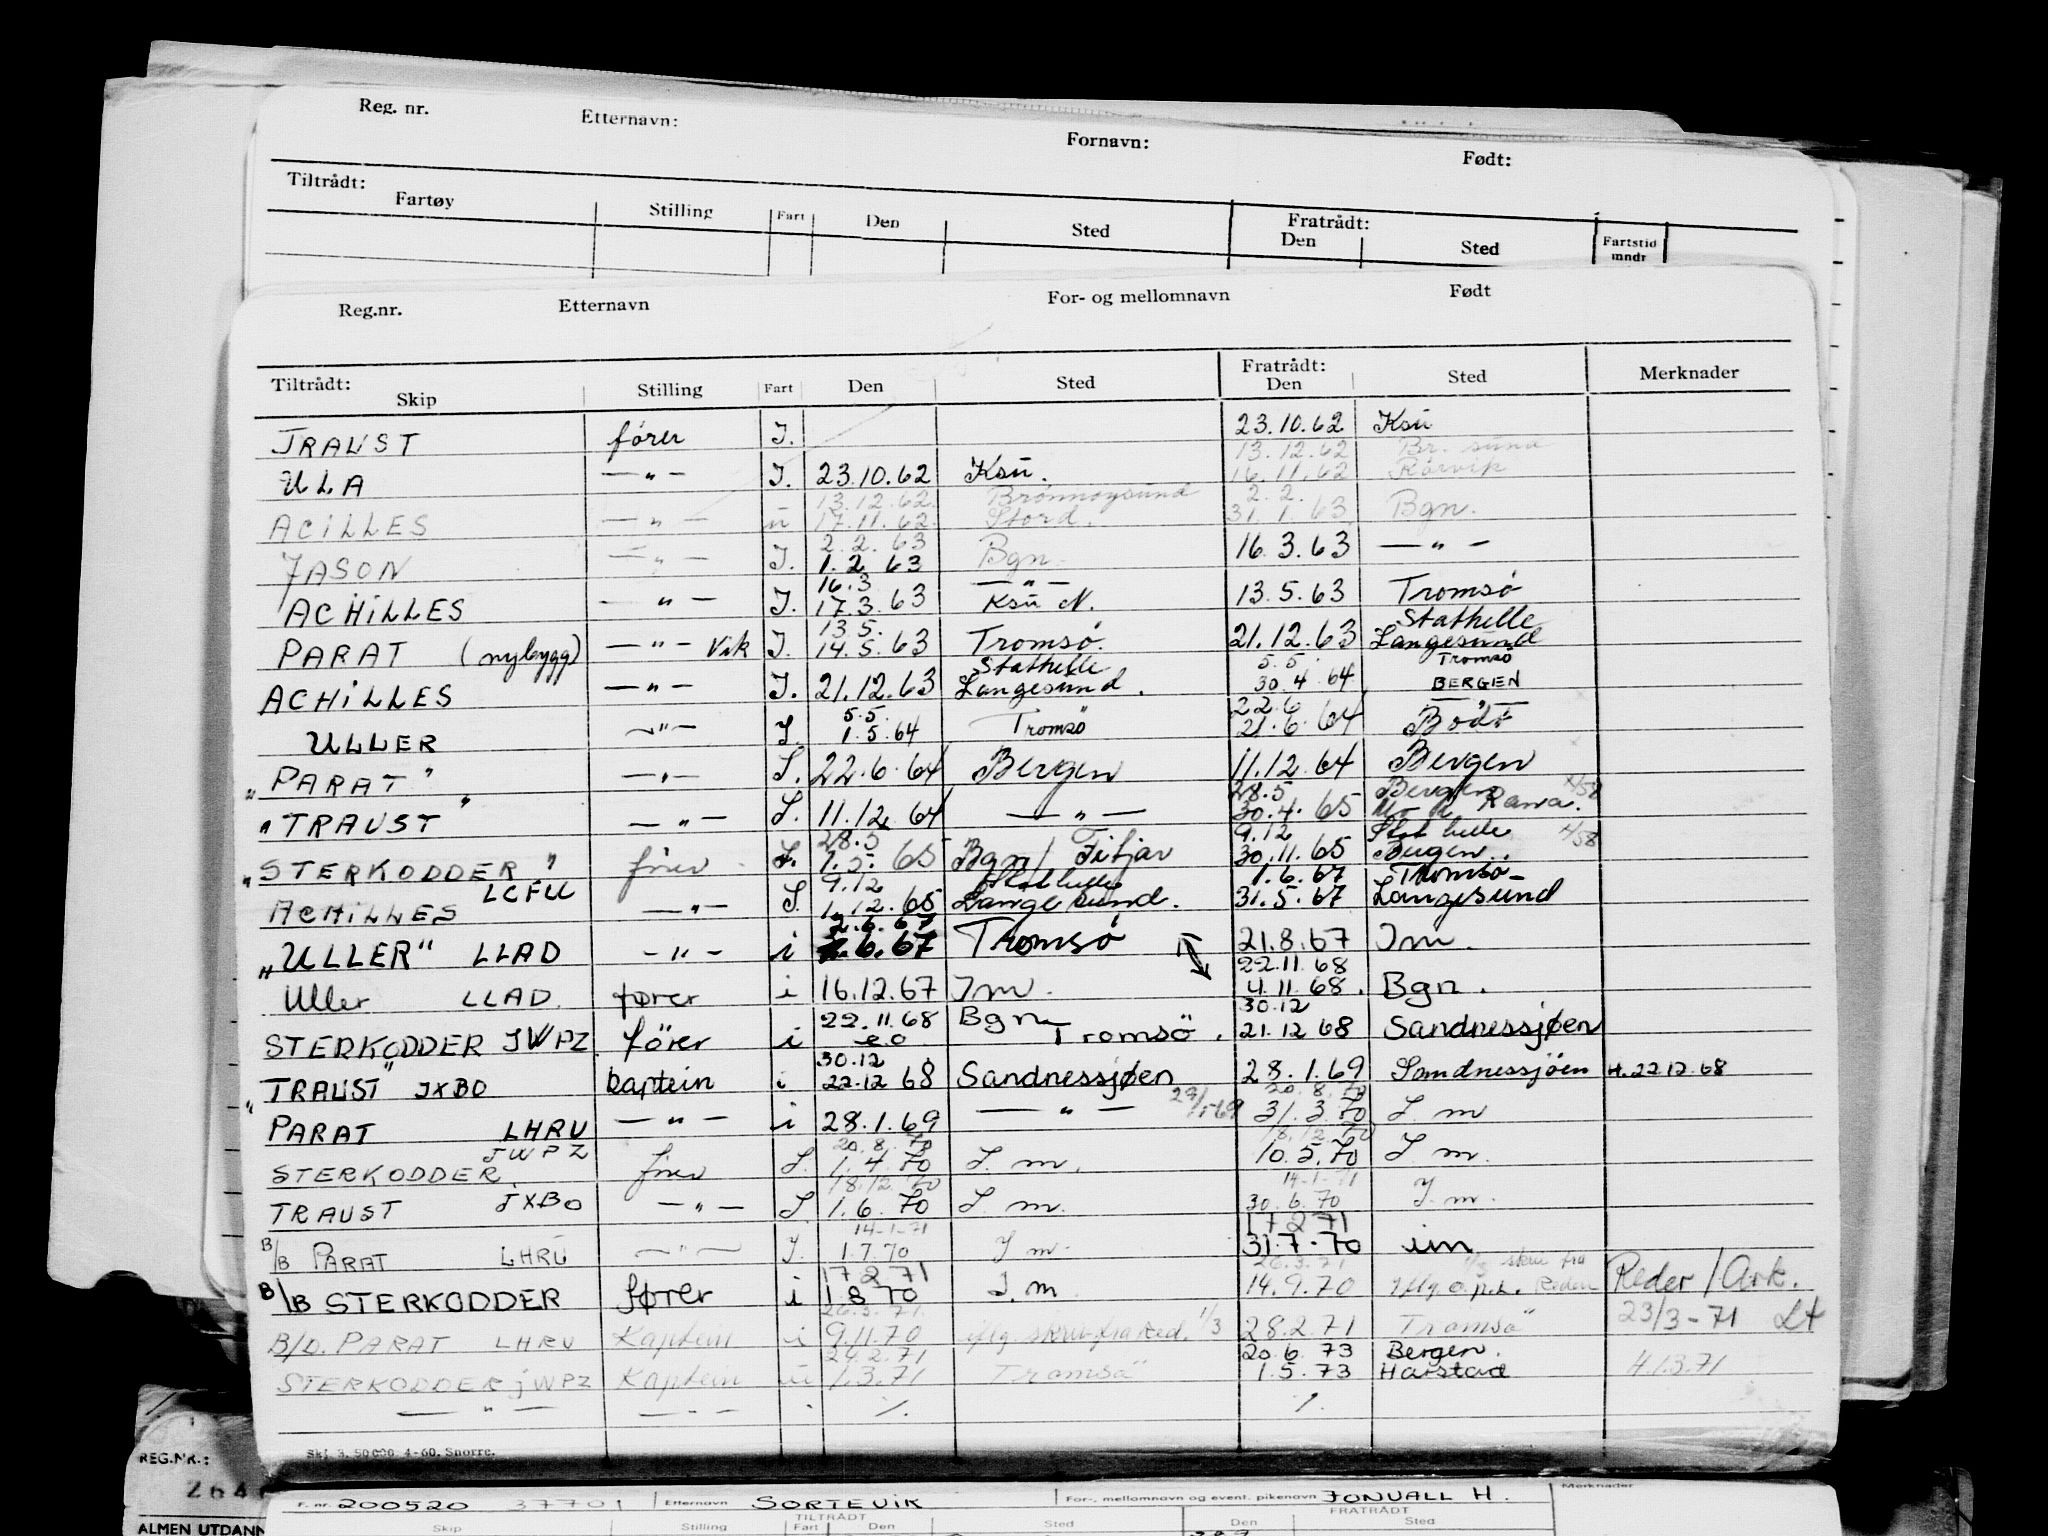 Reg. nr. Etternavn: Fornavn: Født:
Tiltrådt: Fratrådt:
Fartøy Stilling Fart Den Sted Den Sted Fartstid mndr
Reg.nr. Etternavn For- og mellomnavn Født
Tiltrådt: Fratrådt:
Skip Stilling Fart Den Sted Den Sted Merknader
TRAUST fører I. 23.10.62 Ksu
13.12.62 Br. sund
ULA — " — I. 23.10.62 Ksu. 16.11.62 Rørvik
13.12.62 Brønnøysund 2.2.
ACILLES — " — u 17.11.62 Stord. 31.1.63 Bgn.
2.2.63
JASON — " — I. 1.2.63 Bgn. 16.3.63 — " —
16.3 — " —
ACHILLES — " — I. 17.3.63 Ksu N. 13.5.63 Tromsø
13.5. Stathelle
PARAT (nybygg) — " — Vik I. 14.5.63 Tromsø. 21.12.63 Langesund
Stathelle 5.5. Tromsø
ACHILLES — " — I. 21.12.63 Langesund. 30.4.64 BERGEN
5.5. 22.6
ULLER — " — I. 1.5.64 Tromsø 21.6.64 Bodø
"PARAT" — " — I. 22.6.64 Bergen 11.12.64 Bergen
28.5 Bergen 4/58
"TRAUST" — " — I. 11.12.64 — " — 30.4.65 Mo i Rana.
28.5 9.12 Stathelle 4/58
"STERKODDER" fører I. 1.5.65 Bgn/Fitjar 30.11.65 Bergen.
9.12 Stathelle 1.6.67 Tromsø
ACHILLES LCFU — " — I. 1.12.65 Langesund. 31.5.67 Langesund
2.6.67
"ULLER" LLAD — " — i 1.6.67 Tromsø 21.8.67 Im.
22.11.68
Uller LLAD. fører i 16.12.67 Im. 4.11.68. Bgn.
22.11.68 Bgn 30.12
STERKODDER JWPZ. fører i eo Tromsö. 21.12 68 Sandnessjøen
30.12
"TRAUST" JXBO kaptein i 22.12 68 Sandnessjøen 28.1.69 Sandnessjöen H. 22.12.68
29/1-69 20.8.70
PARAT LHRU — " — i 28.1.69 — " — 31.3.70 I. m
20.8.70 18.12.70
STERKODDER JWPZ fører I. 1.4.70 I. m. 10.5.70 I m.
18.12.70 14-1-71
TRAUST JXBO — " — I 1.6.70 I. m. 30.6.70 I. m.
14-1-71 17 2 71
B/B PARAT LHRU — " — I. 1.7.70 I m. 31.7.70 im
17 2 71 26.3.71 1/3 skriv fra
B/B STERKODDER fører i 1 8 70 I. m 14.9.70 Iflg. o.p.l. Rederi Reder/Ark.
26.3.71 23/3-71 Lt
B/D. PARAT LHRU Kaptein i 9.11.70 iflg. skriv fra Red. 1/3 28.2.71 Tromsö
24.2.71 20.6.73 Bergen.
STERKODDER JWPZ Kaptein u 1.3.71 Tromsö 1.5.73 Harstad H.1.3.71
— " — — " — · /. /.
Skj. 3. 50 000. 4-60. Snorre.
REG.NR.:
264
ALMEN UTDANN
F. nr. 200520 37701 Etternavn SORTEVIK For-, mellomnavn og event. pikenavn JONVALL H. Merknader
TILTRÅDT FRATRÅDT
Skip Stilling Fart Den Sted Den Sted